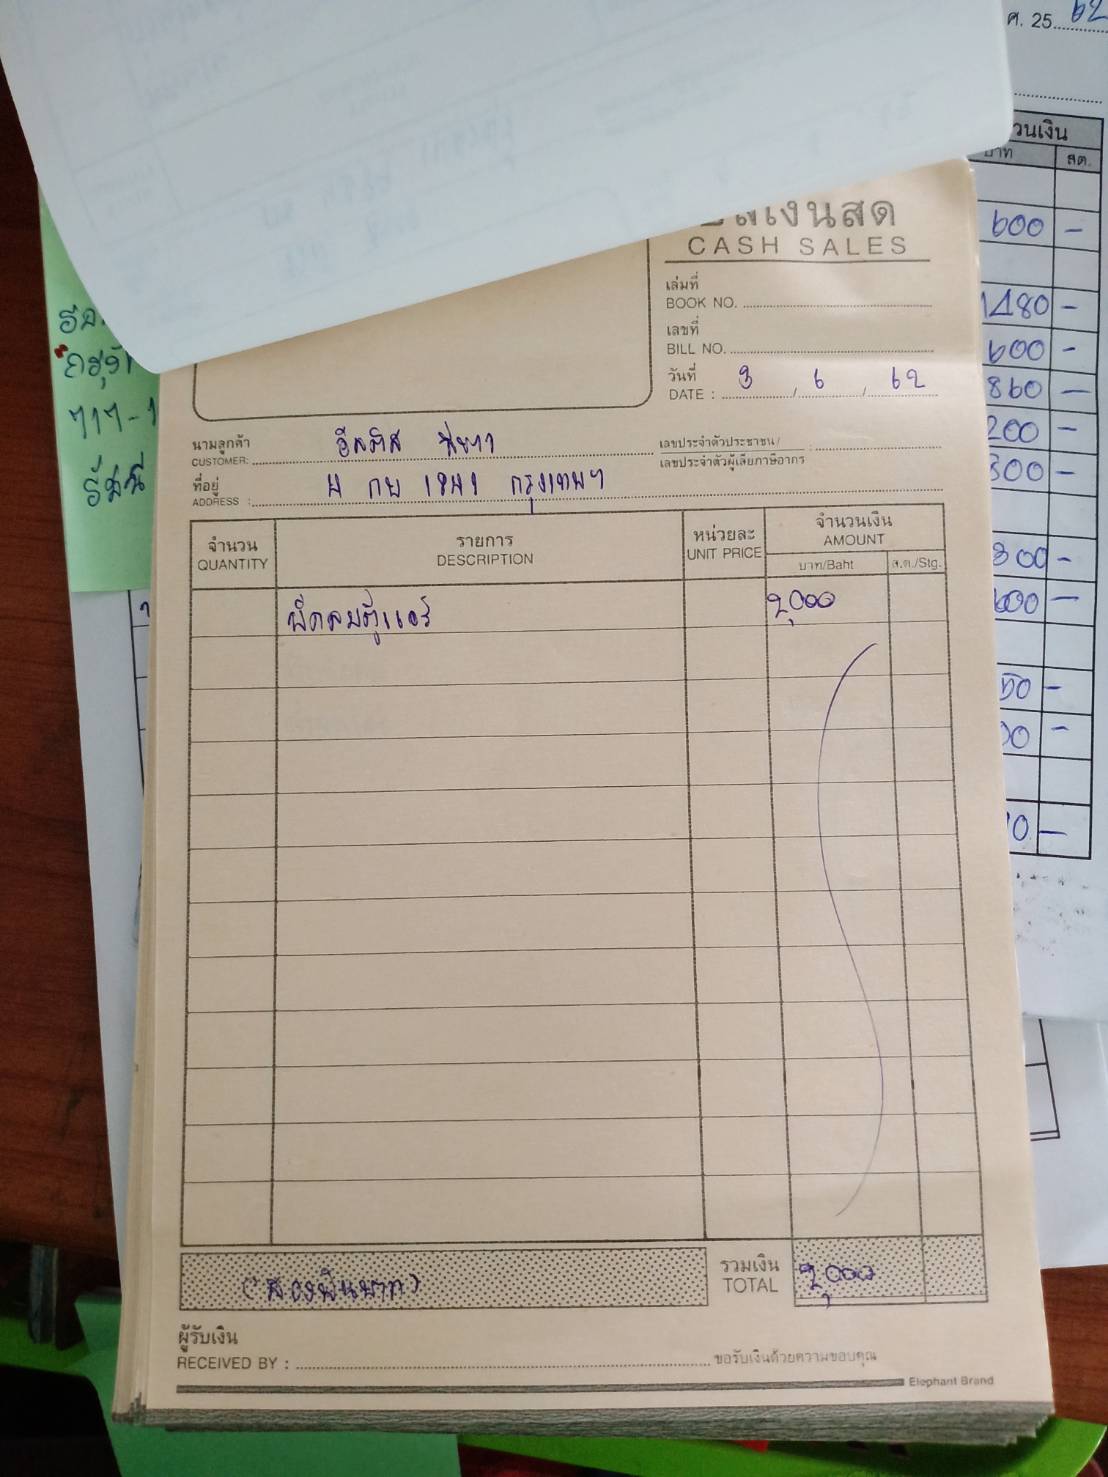 ศ. 25 62
วนเงิน
บาท สต.
600 -
1480 -
600 -
860 -
200 -
300 -
300 -
600 -
50 -
00 -
10 -
717-1
CASH SALES
เล่มที่
BOOK NO.
เลขที่
BILL NO.
วันที่
DATE : 3 / 6 / 62
นามลูกค้า
CUSTOMER: อีลติส
เลขประจำตัวประชาชน/
เลขประจำตัวผู้เสียภาษีอากร
ที่อยู่
ADDRESS : กรุงเทพฯ
จำนวน รายการ หน่วยละ จำนวนเงิน
QUANTITY DESCRIPTION UNIT PRICE AMOUNT
บาท/Baht ส.ต./Stg.
พัดลมตู้แอร์ 2,000
(สองพันบาท) รวมเงิน 2,000
TOTAL
ผู้รับเงิน
RECEIVED BY : ขอรับเงินด้วยความขอบคุณ
Elephant Brand